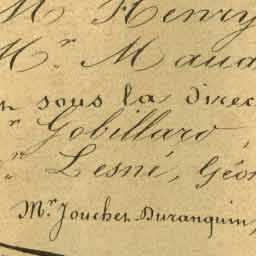 M Henry
Mr Maud
n sous la direc
r Gobillard,
r Lesné, Géo
Mr Jouchet Duranquin,